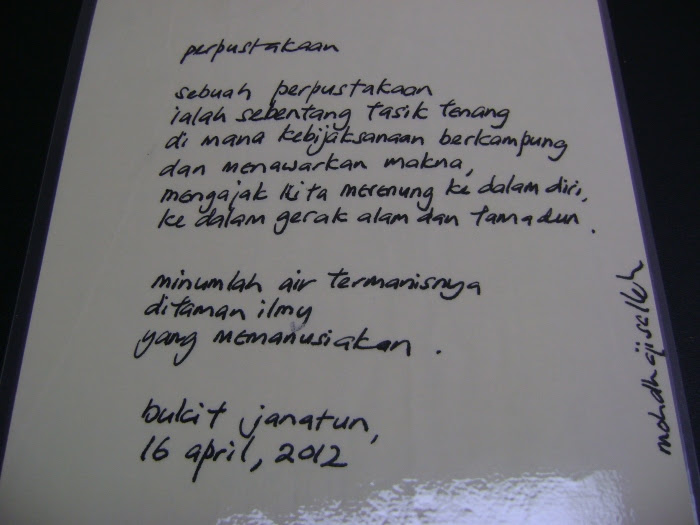 perpustakaan
sebuah perpustakaan
ialah sebentang tasik tenang
di mana kebijaksanaan berkampung
dan menawarkan makna,
mengajak kita merenung ke dalam diri,
ke dalam gerak alam dan tamadun.
minumlah air termanisnya
ditaman ilmu
yang memanusiakan.
bukit janatun,
16 april, 2012
mohdhajisalleh